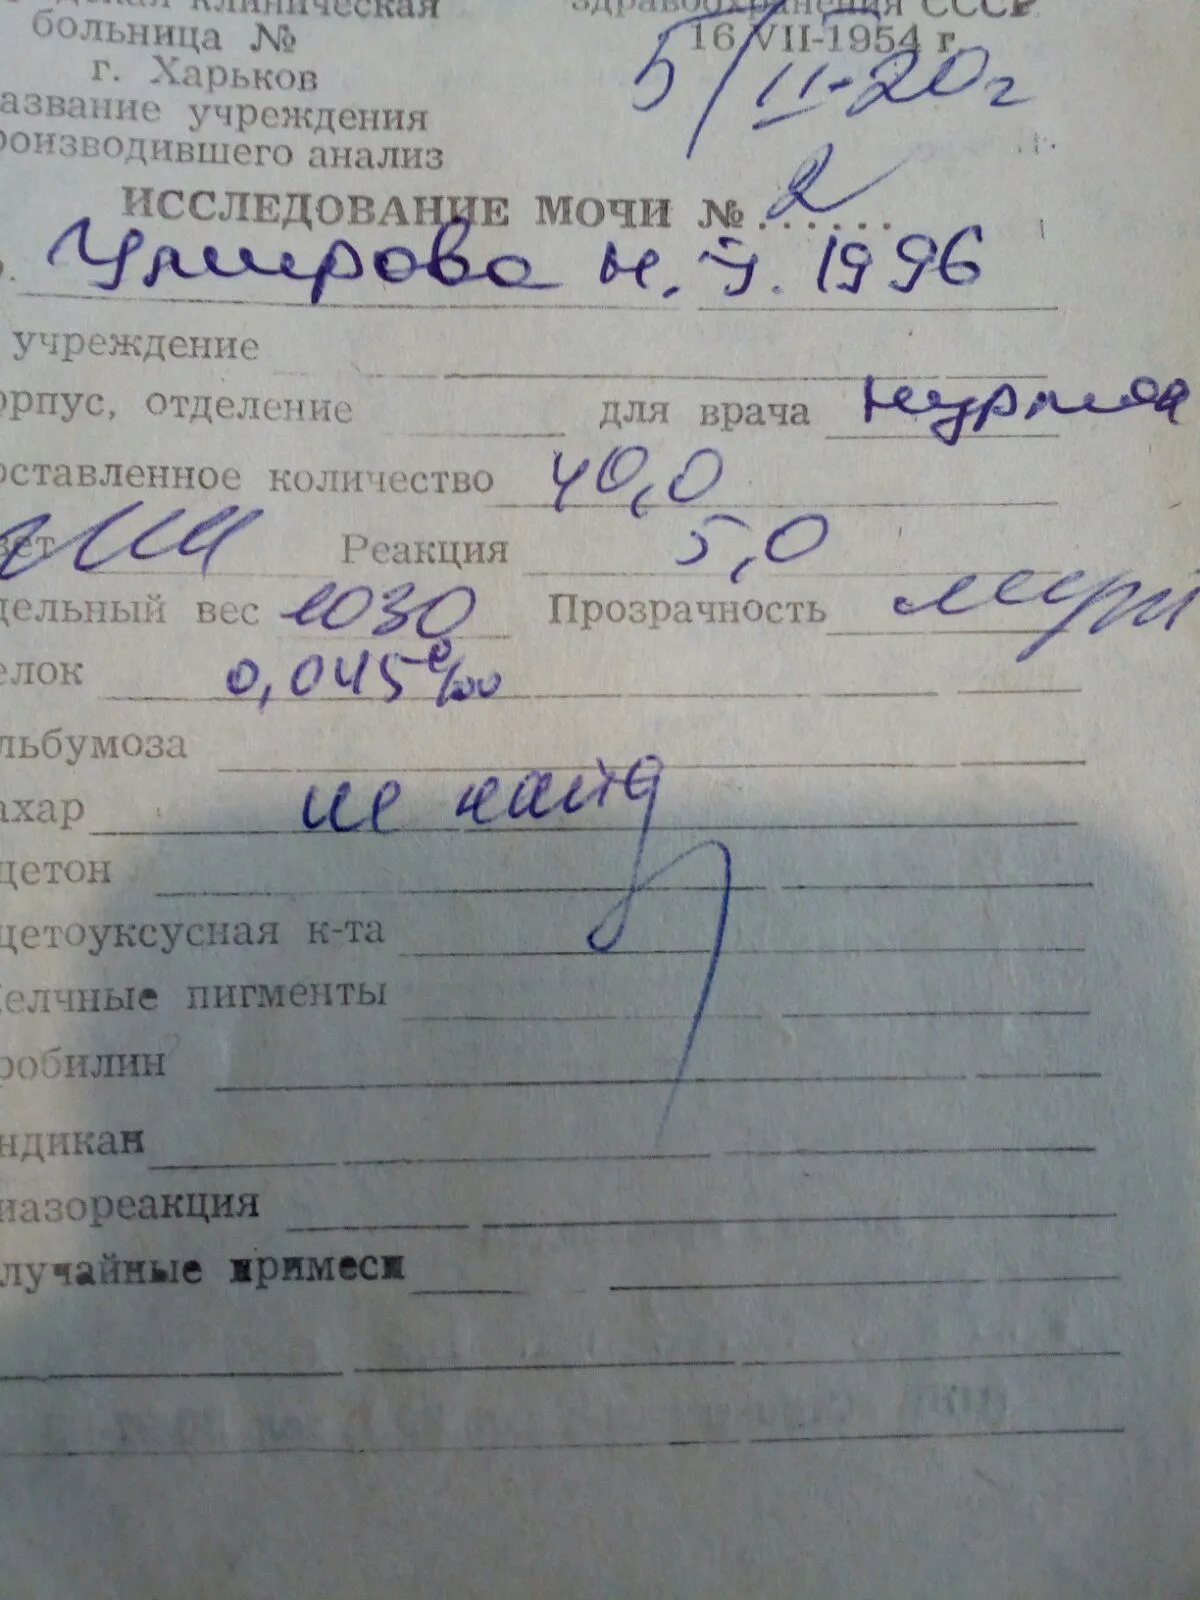 клиническая здравоохранения СССР
больница № 16 VII-1954 г.
г. Харьков 5/II-20г
азвание учреждения
роизводившего анализ
ИССЛЕДОВАНИЕ МОЧИ № 2
Умирова Н. У. 1996
учреждение
орпус, отделение для врача
оставленное количество 40,0
вет Реакция 5,0
дельный вес 1030 Прозрачность
елок 0,045‰
льбумоза
ахар не найд
цетон
цетоуксусная к-та
елчные пигменты
робилин
ндикан
иазореакция
лучайные примеси